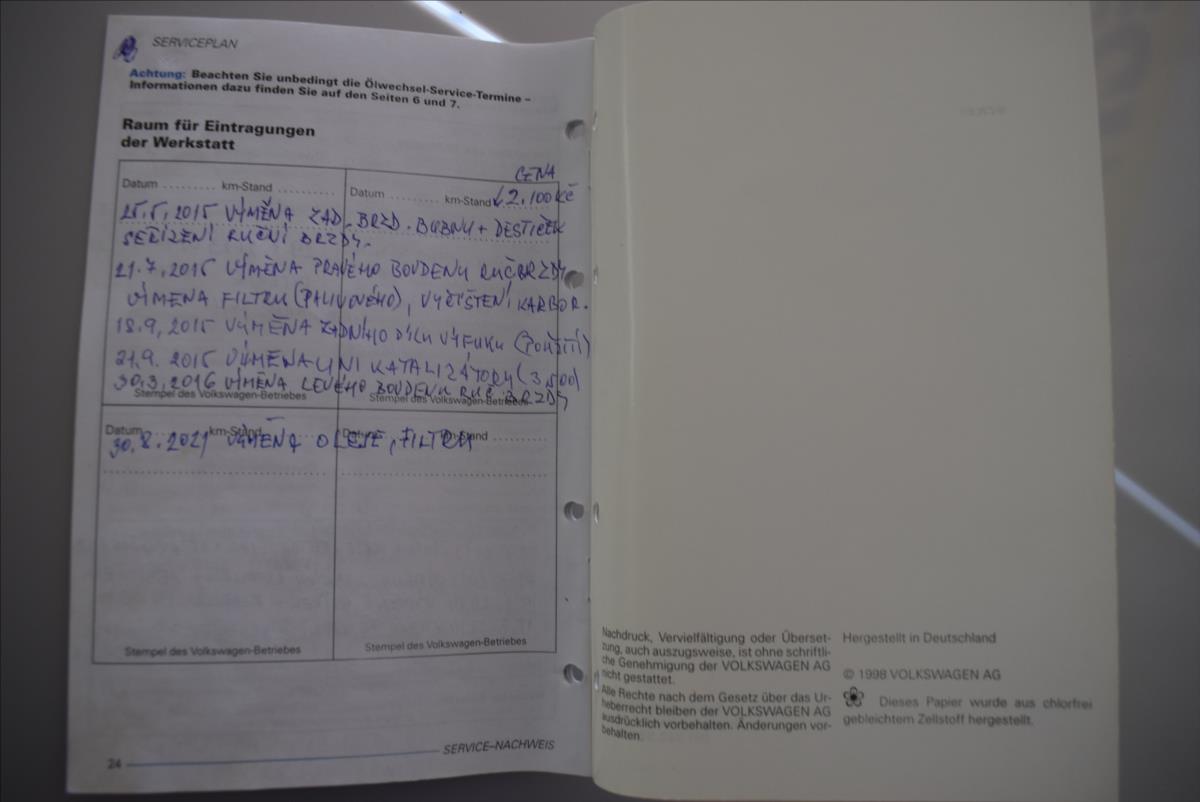 SERVICEPLAN
Achtung: Beachten Sie unbedingt die Ölwechsel-Service-Termine –
Informationen dazu finden Sie auf den Seiten 6 und 7.
Raum für Eintragungen
der Werkstatt
CENA
Datum ......... km-Stand .......... Datum ......... km-Stand 2.100 Kč
25.5.2015 VÝMĚNA ZAD. BRZD. BUBNU + DESTIČEK
SEŘÍZENÍ RUČNÍ BRZDY.
21.7.2015 VÝMĚNA PRAVÉHO BOVDENU RUČ BRZDY
VÝMENA FILTRU (PALIVOVÉHO), VYČIŠTENÍ KARBOR.
18.9.2015 VÝMĚNA ZADNÍHO DÍLU VÝFUKU (POUŽITÍ)
21.9.2015 VÝMĚNA UNI KATALIZÁTORU (3.500)
30.3.2016 VÝMĚNA LEVÉHO BOVDENU RUČ BRZDY
Stempel des Volkswagen-Betriebes Stempel des Volkswagen-Betriebes
Datum km-Stand Datum km-Stand ..........
30.8.2021 VÝMĚNA OLEJE, FILTRU
Stempel des Volkswagen-Betriebes Stempel des Volkswagen-Betriebes
24 SERVICE–NACHWEIS
Nachdruck, Vervielfältigung oder Überset-
zung, auch auszugsweise, ist ohne schriftli-
che Genehmigung der VOLKSWAGEN AG
nicht gestattet.
Alle Rechte nach dem Gesetz über das Ur-
heberrecht bleiben der VOLKSWAGEN AG
ausdrücklich vorbehalten. Änderungen vor-
behalten.
Hergestellt in Deutschland
© 1998 VOLKSWAGEN AG
Dieses Papier wurde aus chlorfrei
gebleichtem Zellstoff hergestellt.